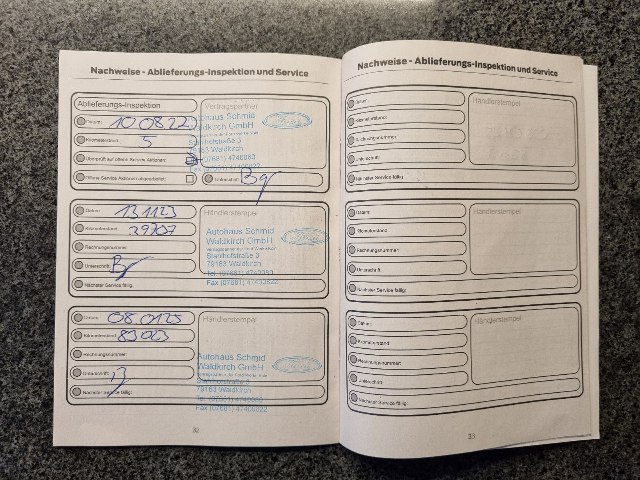 Nachweise - Ablieferungs-Inspektion und Service
Ablieferungs-Inspektion
Vertragspartner
Datum: 10 08 22
Kilometerstand: 5
Überprüft auf offene Service Aktionen:
Offene Service Aktionen abgearbeitet:
Unterschrift:
Autohaus Schmid
Waldkirch GmbH
Stahlhofstraße 3
79183 Waldkirch
Tel. (07681) 4740080
Händlerstempel
Datum: 13 11 23
Kilometerstand: 29707
Rechnungsnummer:
Unterschrift:
Nächster Service fällig:
Autohaus Schmid
Waldkirch GmbH
Stahlhofstraße 3
79183 Waldkirch
Tel. (07681) 4740080
Fax (07681) 47400822
Händlerstempel
Datum: 08.01.25
Kilometerstand: 83023
Rechnungsnummer:
Unterschrift:
Nächster Service fällig:
Autohaus Schmid
Waldkirch GmbH
Stahlhofstraße 3
79183 Waldkirch
Tel. (07681) 4740080
Fax (07681) 47400822
32
Nachweise - Ablieferungs-Inspektion und Service
Datum:
Kilometerstand:
Rechnungsnummer:
Unterschrift:
Nächster Service fällig:
Händlerstempel
Datum:
Kilometerstand:
Rechnungsnummer:
Unterschrift:
Nächster Service fällig:
Händlerstempel
Datum:
Kilometerstand:
Rechnungsnummer:
Unterschrift:
Nächster Service fällig:
Händlerstempel
33